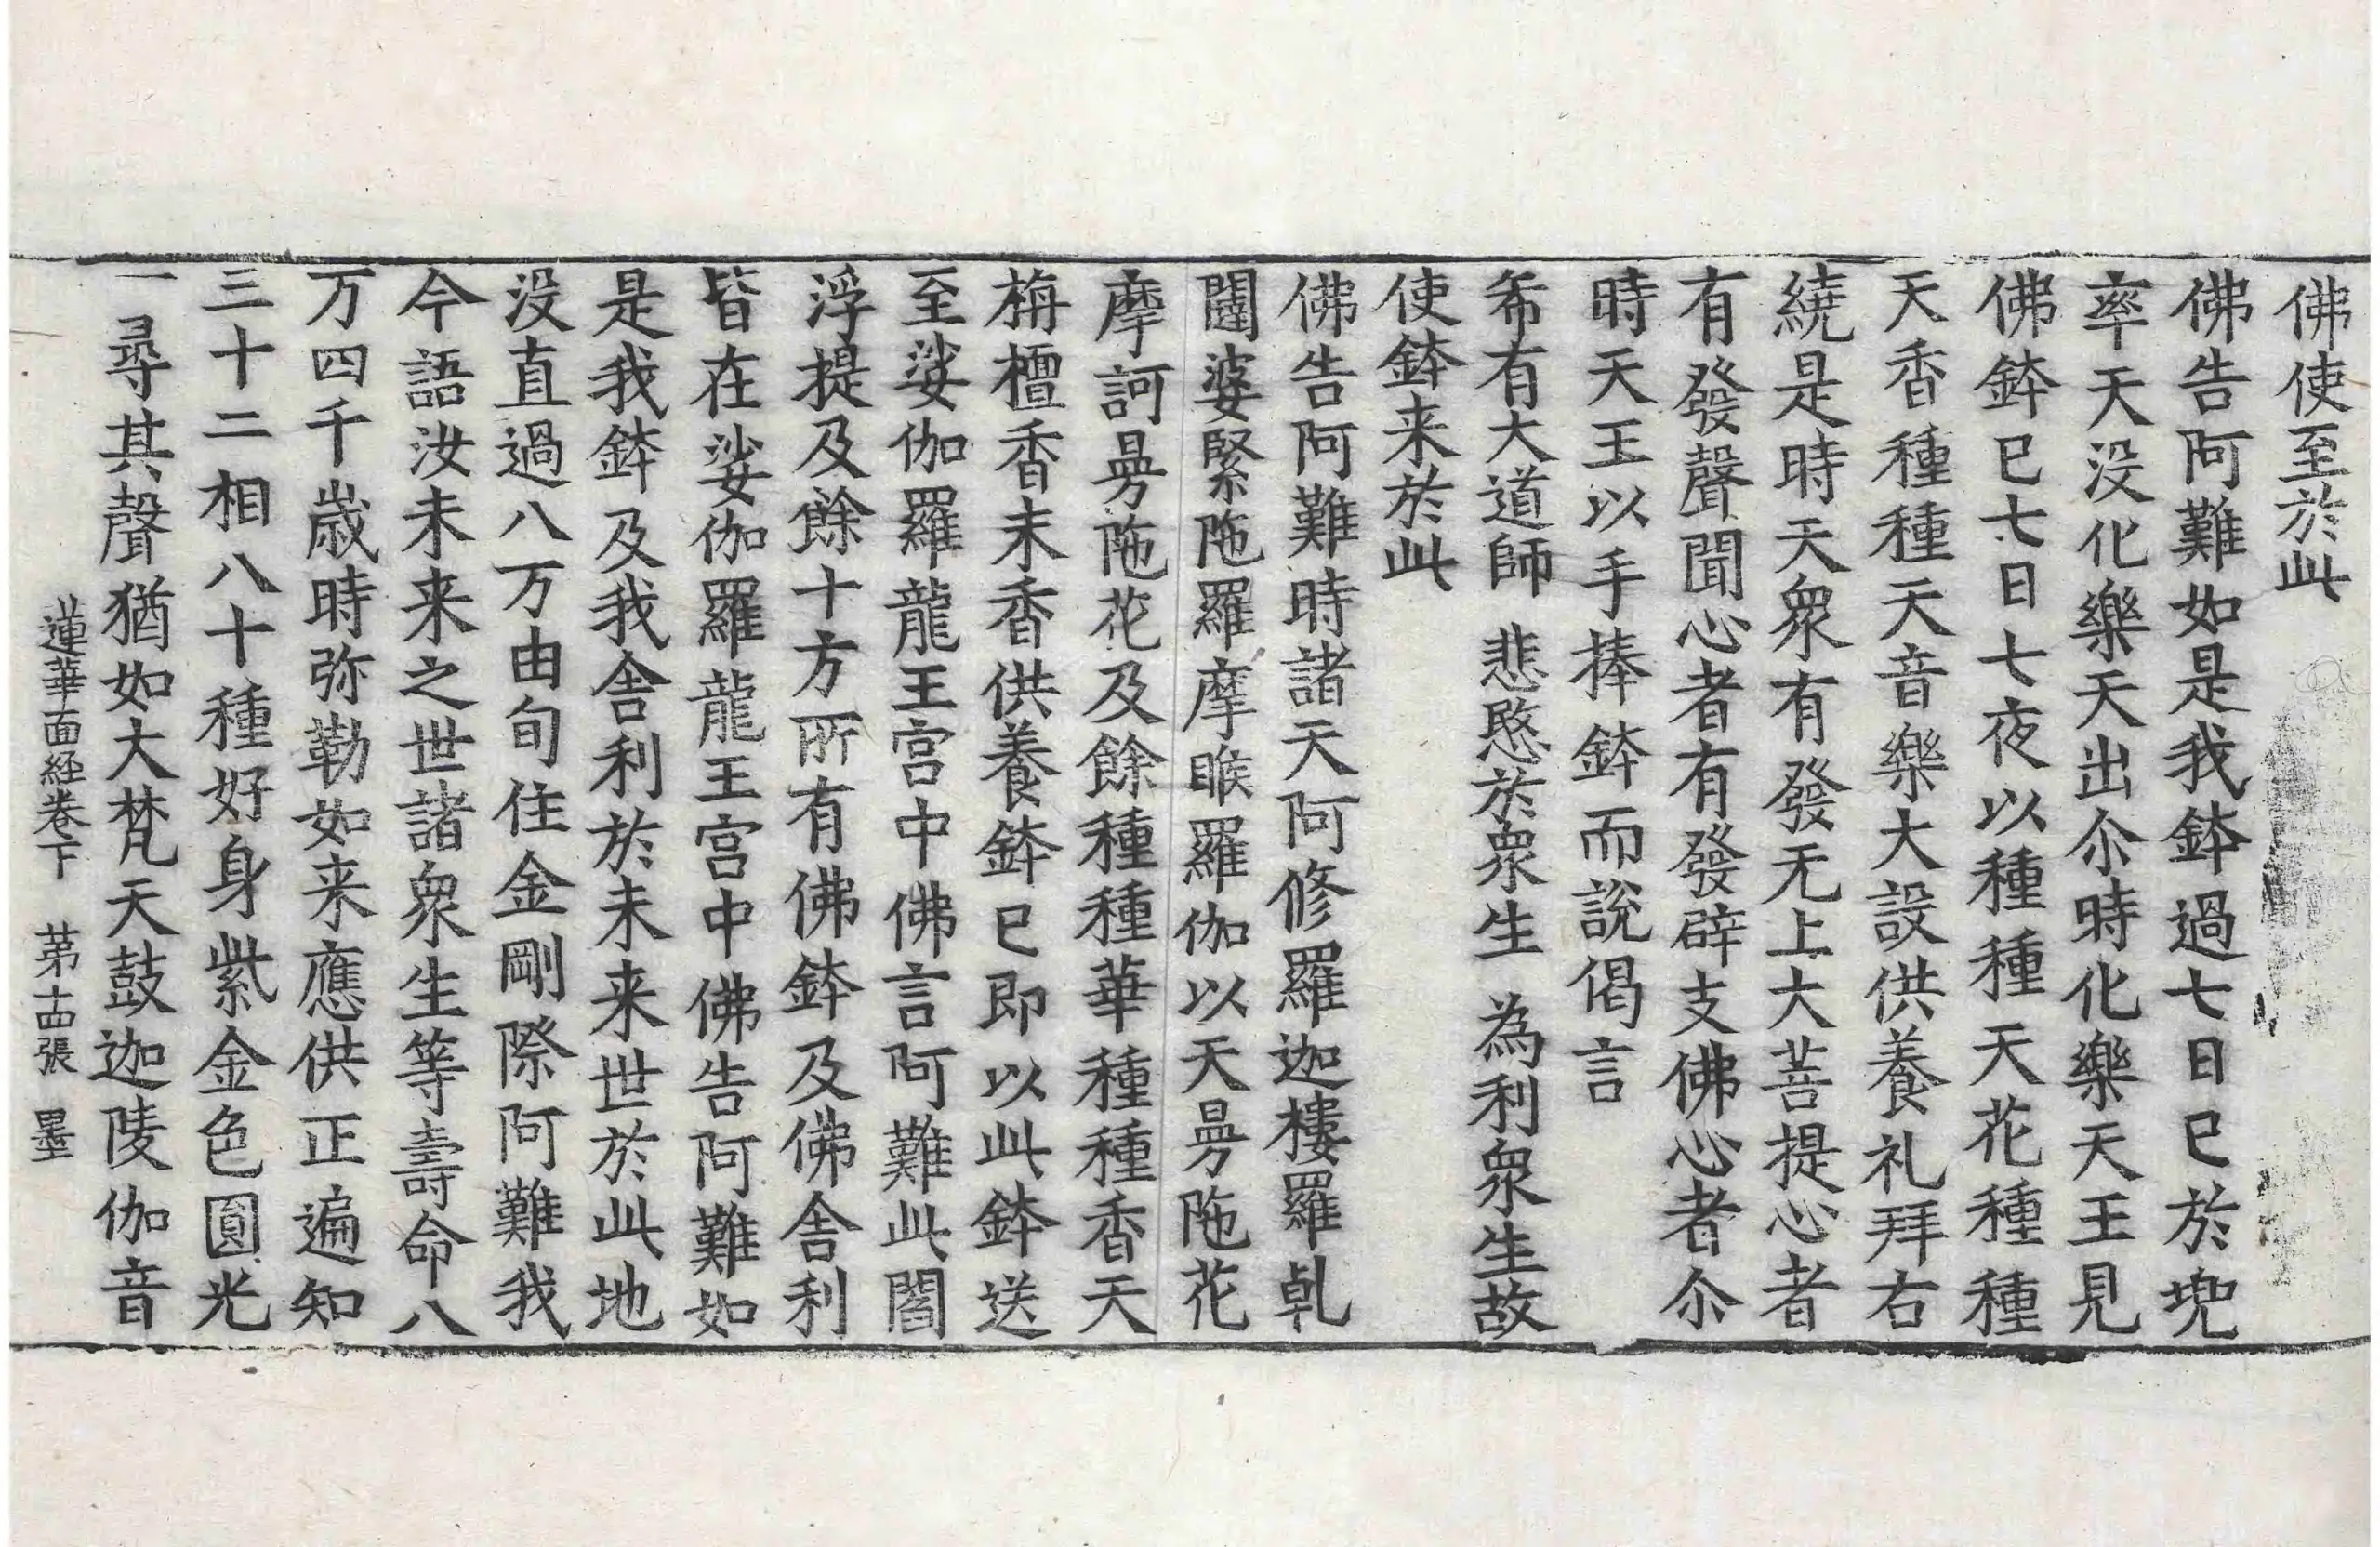 佛使至於此
佛告阿難如是我鉢過七日已於兠
率天没化樂天出尒時化樂天王見
佛鉢已七日七夜以種種天花種種
天香種種天音樂大設供養礼拜右
繞是時天衆有發无上大菩提心者
有發聲聞心者有發辟支佛心者尒
時天王以手捧鉢而說偈言
希有大道師　悲愍於衆生　為利衆生故
使鉢来於此
佛告阿難時諸天阿修羅迦樓羅乹
闥婆緊陁羅摩睺羅伽以天曼陁花
摩訶曼陁花及餘種種華種種香天
栴檀香末香供養鉢已即以此鉢送
至娑伽羅龍王宫中佛言阿難此閻
浮提及餘十方所有佛鉢及佛舍利
皆在娑伽羅龍王宫中佛告阿難如
是我鉢及我舍利於未来世於此地
没直過八万由旬住金剛際阿難我
今語汝未来之世諸衆生等壽命八
万四千歳時弥勒如来應供正遍知
三十二相八十種好身紫金色圓光
一尋其聲猶如大梵天鼓迦陵伽音
蓮華面経卷下　苐十四張　墨